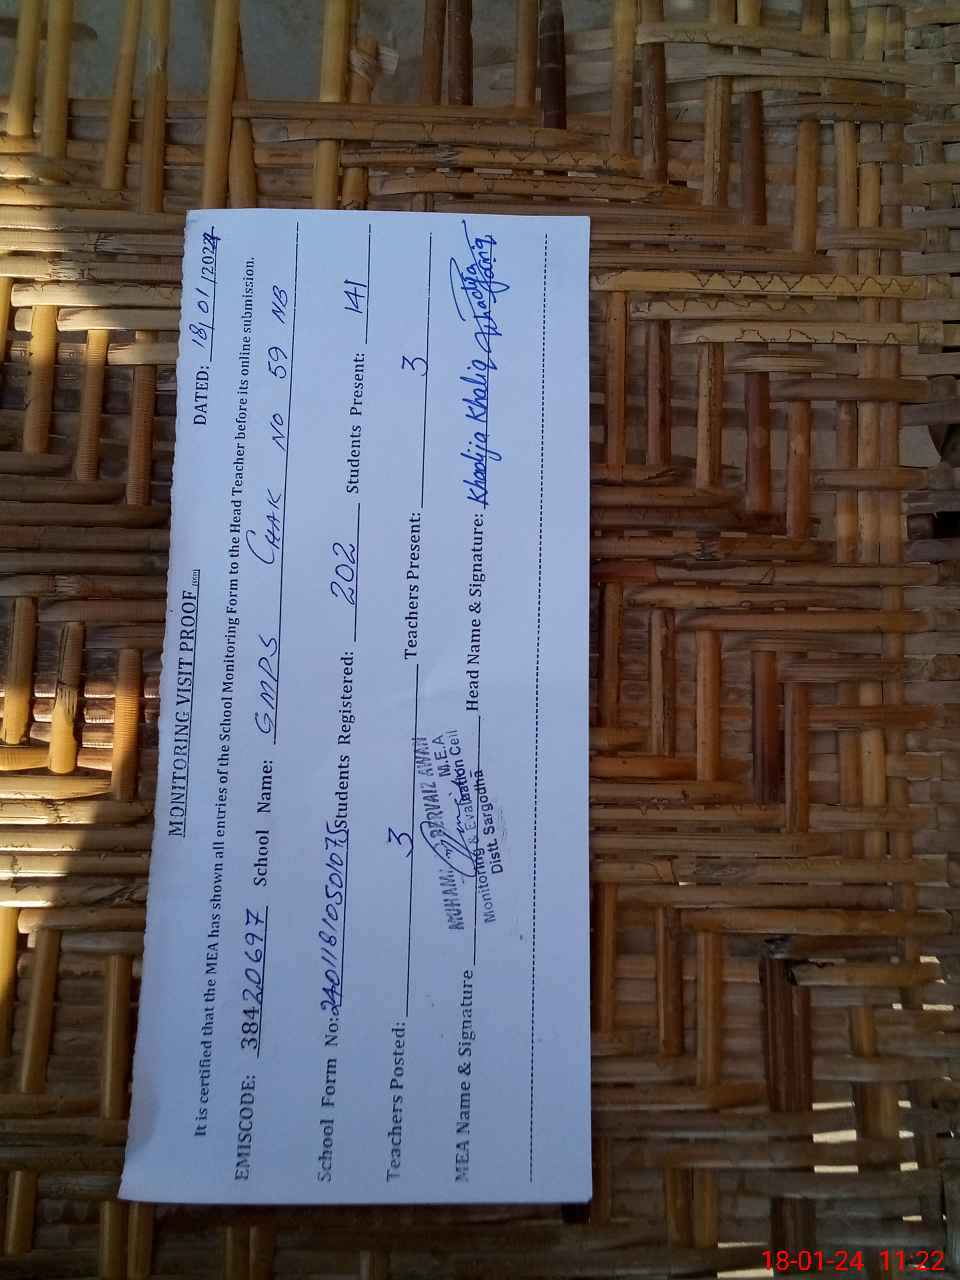 MONITORING VISIT PROOF
DATED: 18/01/2024
It is certified that the MEA has shown all entries of the School Monitoring Form to the Head Teacher before its online submission.
EMISCODE: 38420697 School Name: GMPS CHAK NO 59 NB
School Form No: Students Registered: 202 Students Present: 141
Teachers Posted: 3 Teachers Present: 3
MEA Name & Signature Head Name & Signature: Khadija Khaliq
PERVAIZ AWAN
M.E.A
Monitoring & Evaluation Cell
Distt. Sargodha
18-01-24 11:22